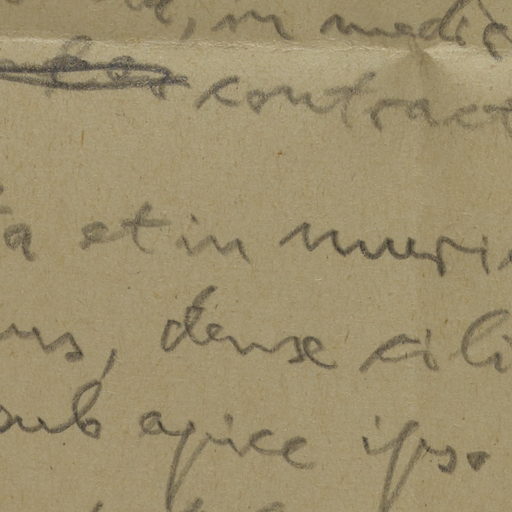 , in medi
contract
ta et in muri
us, dense cili
sub apice ipso